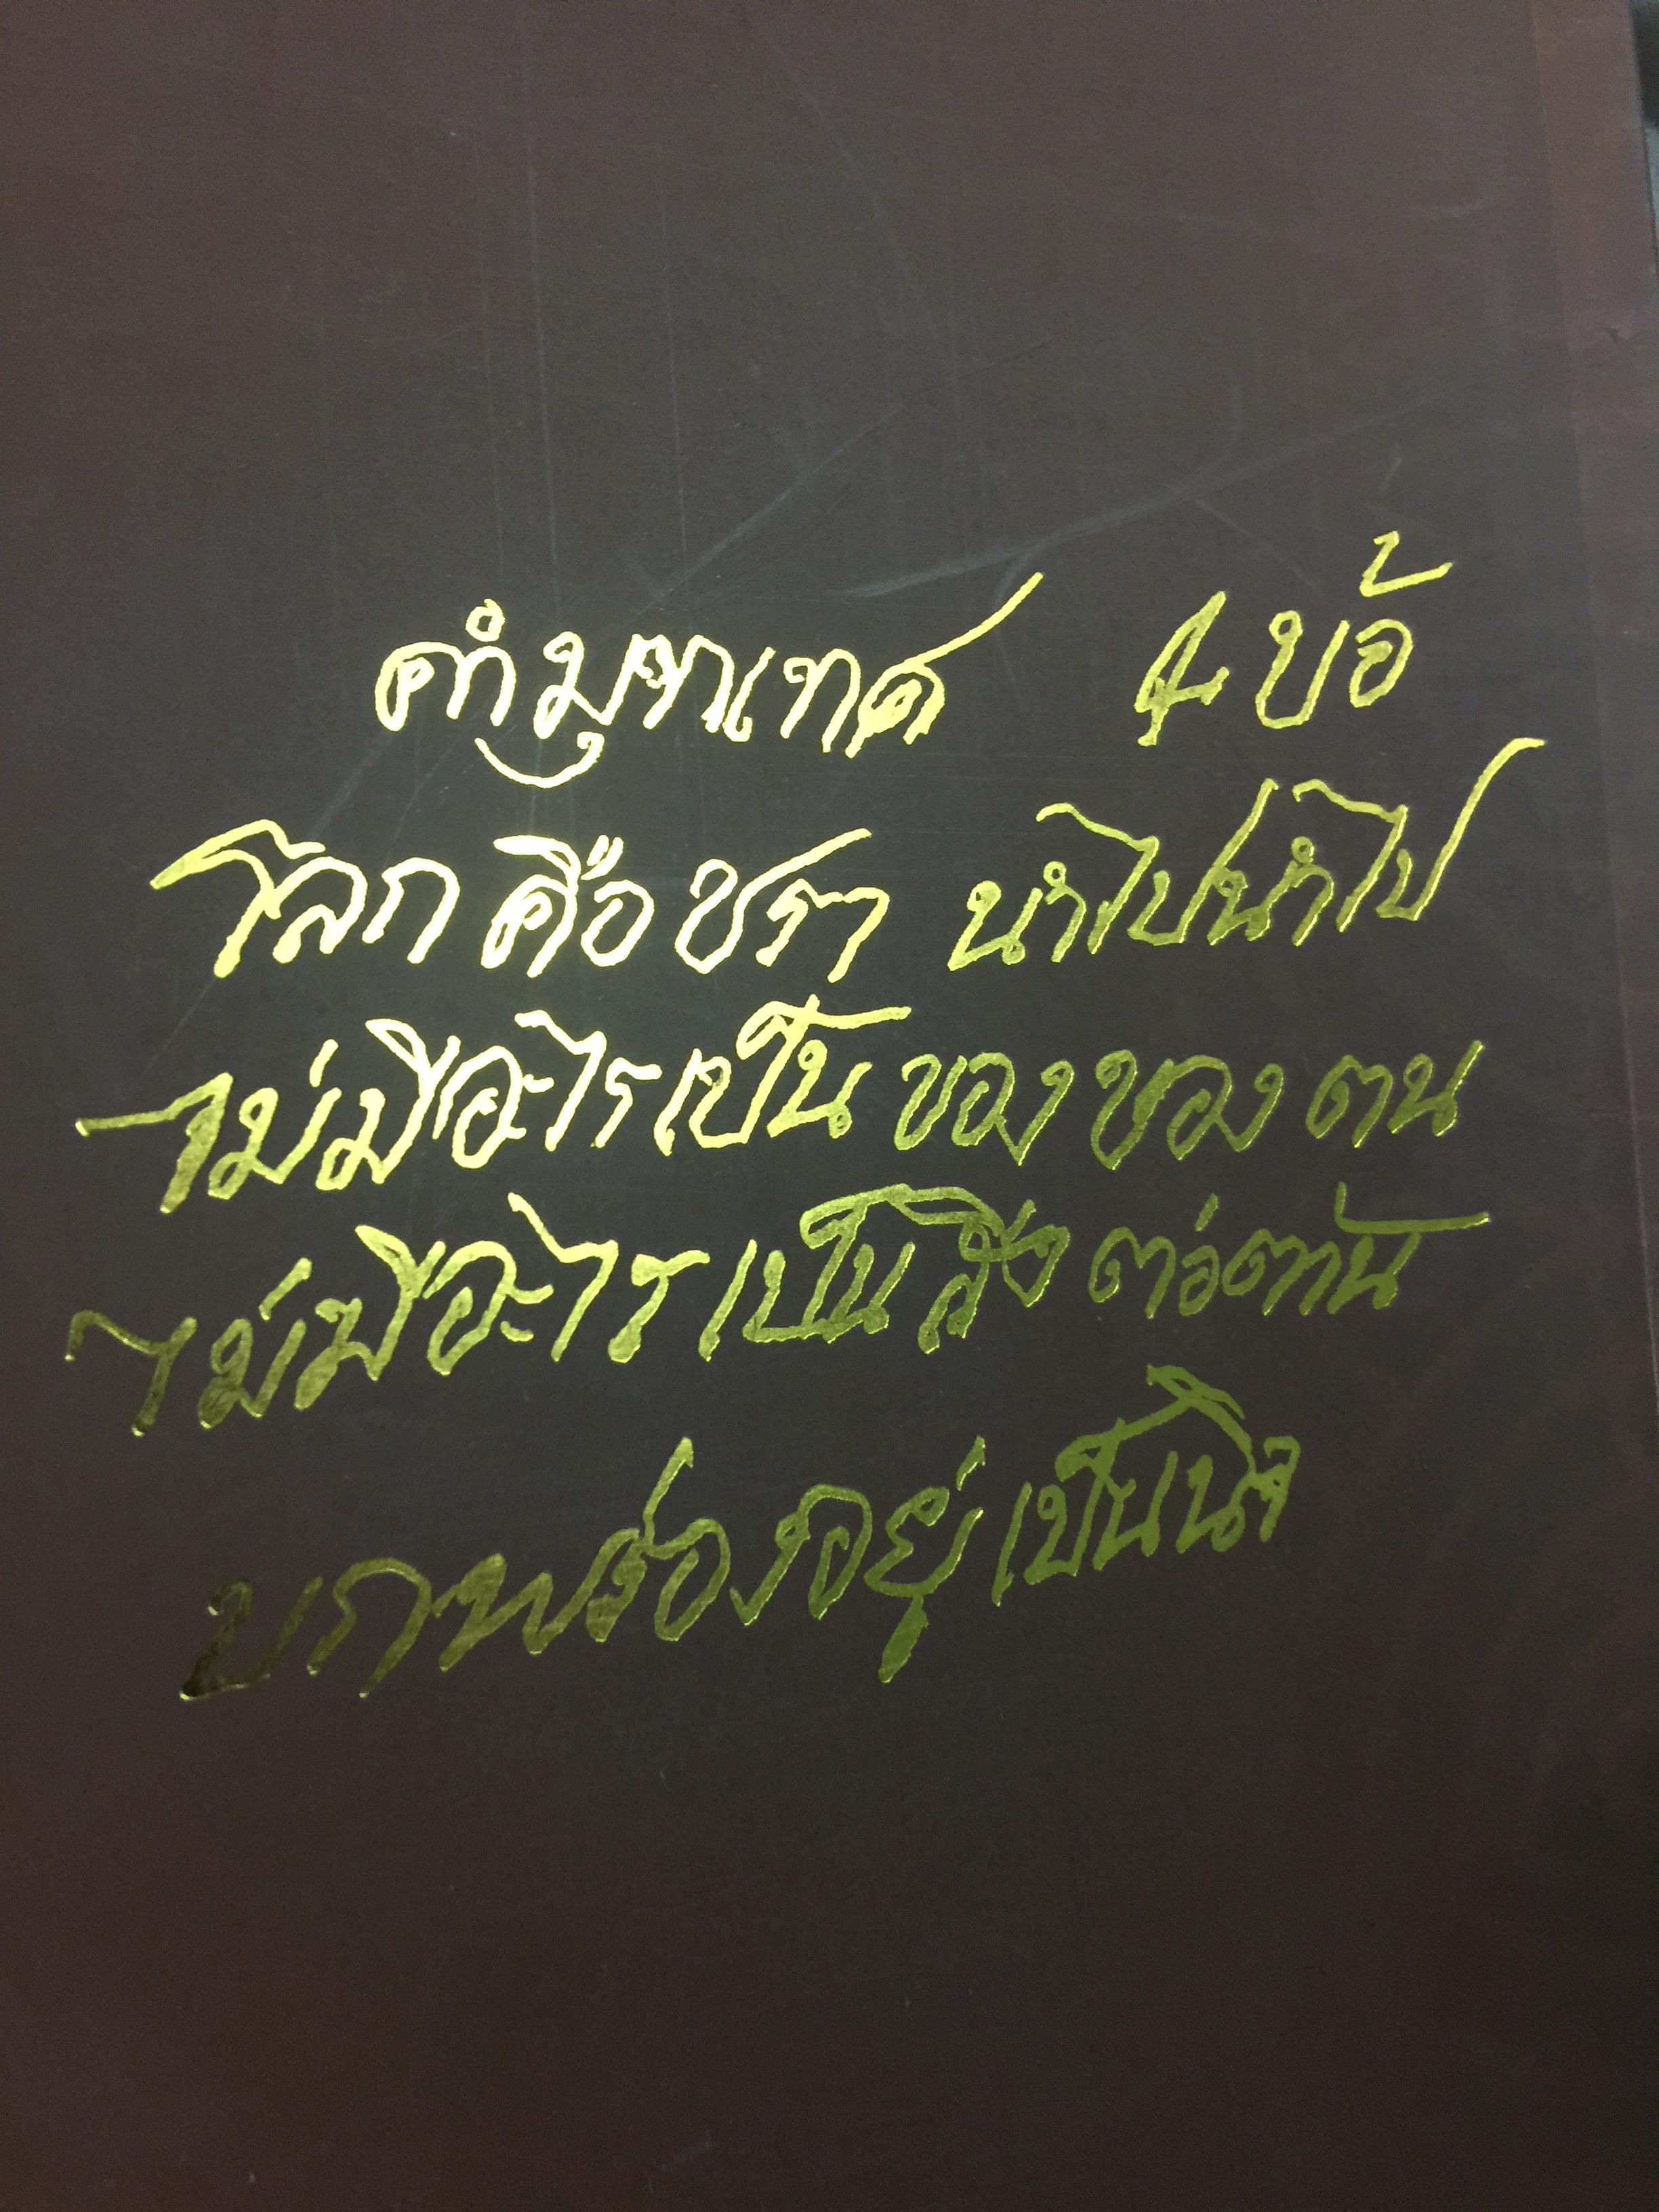 4 ข้อ
โลก คือ ชรา นำไปนำไป
ไม่มีอะไรเป็น ของของ ตน
ไม่มีอะไร เป็น สิ่ง ต่อต้าน
บกพร่องอยู่ เป็นนิจ